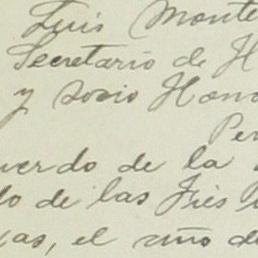 Luis Monte
Secretario de H
y socio Hono
Per
uerdo de la
do de las Fies
as, el año de